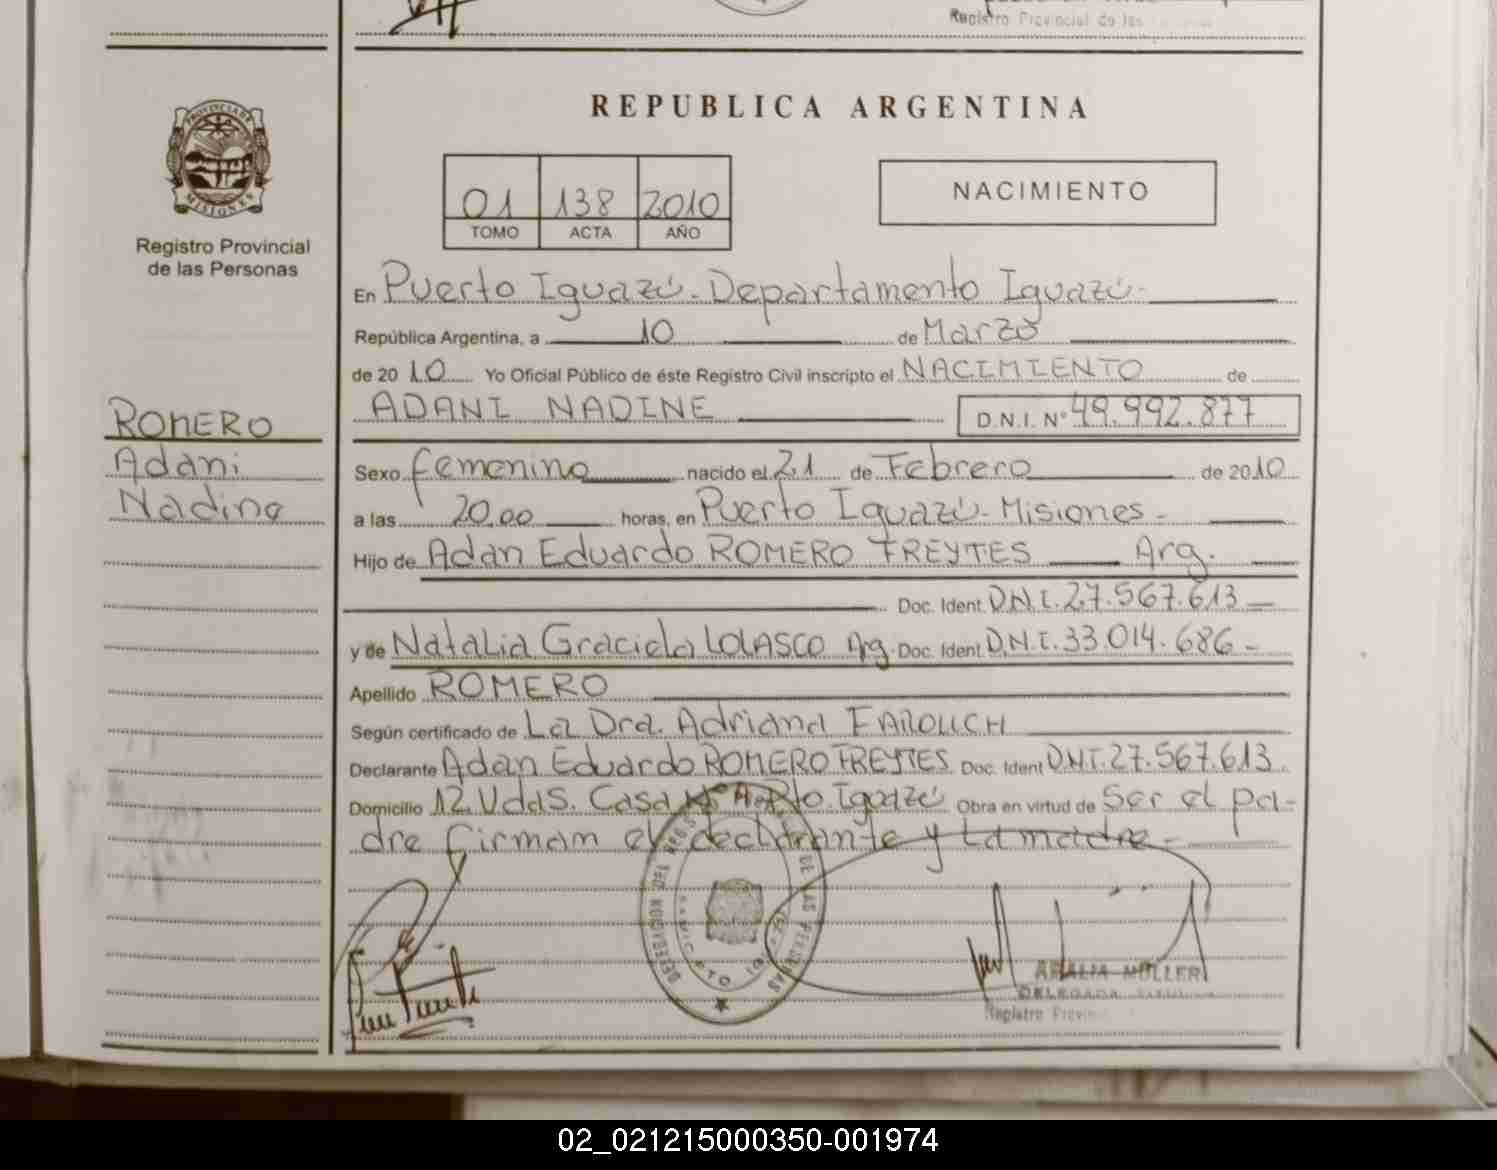 Registro Provincial de las
REPUBLICA ARGENTINA
PROVINCIA DE
MISIONES
Registro Provincial
de las Personas
01 138 2010
TOMO ACTA AÑO
NACIMIENTO
En Puerto Iguazú - Departamento Iguazú -
República Argentina, a 10 de Marzo
de 2010 Yo Oficial Público de éste Registro Civil inscripto el NACIMIENTO de
ADANI NADINE D.N.I. Nº 49.992.877
ROMERO
Adani
Nadine
Sexo femenino nacido el 21 de Febrero de 2010
a las 20,00 horas, en Puerto Iguazú - Misiones -
Hijo de Adan Eduardo ROMERO FREYTES Arg.
Doc. Ident. D.N.I. 27.567.613 -
y de Natalia Graciela LOLASCO Arg. Doc. Ident. D.N.I. 33.014.686 -
Apellido ROMERO
Según certificado de La Dra. Adriana FAROUCH
Declarante Adan Eduardo ROMERO FREYTES Doc. Ident D.N.I. 27.567.613.
Domicilio 12 Vdas. Casa Nº A Pto. Iguazú Obra en virtud de Ser el pa-
dre firman el declarante y la madre -
AMALIA MULLER
DELEGADA
Registro Provin
02_021215000350-001974